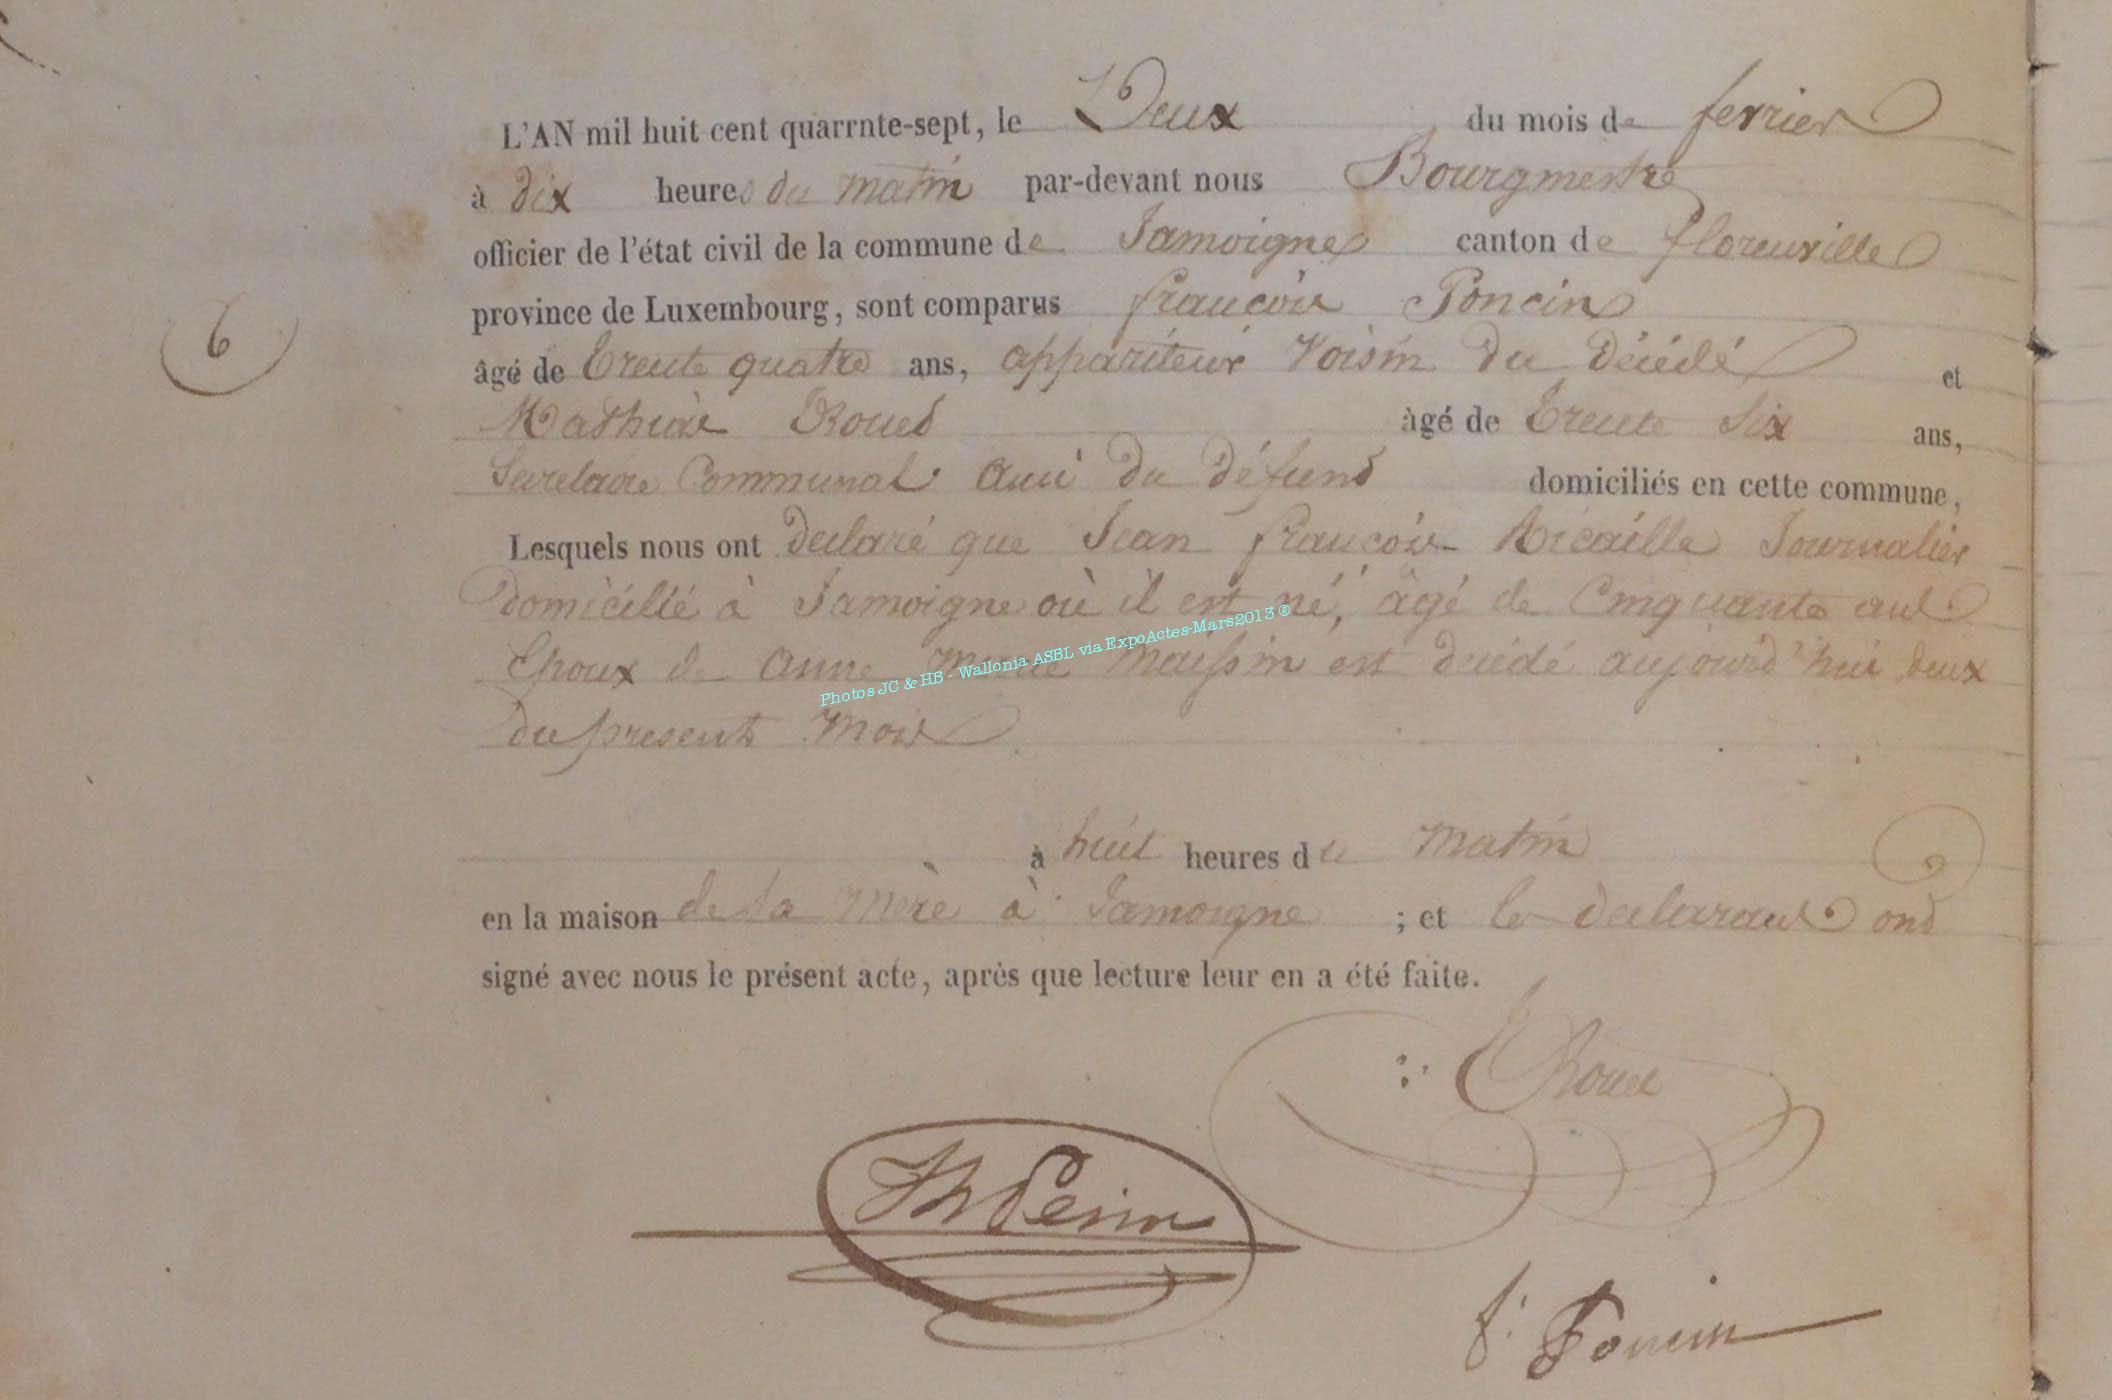 L'AN mil huit cent quarrnte-sept, le Deux du mois de fevrier
à dix heures du matin par-devant nous Bourgmestre
officier de l'état civil de la commune de Jamoigne canton de florenville
province de Luxembourg, sont comparus françois Poncin
6
âgé de Trente quatre ans, appariteur Voisin du Décédé et
Mathias Rouet âgé de Trente Six ans,
Secretaire Communal ami du défunt domiciliés en cette commune,
Lesquels nous ont declaré que Jean françois Micaille Journalier
domicilié à Jamoigne où il est né, âgé de Cinquante ans
Epoux de anne marie maissin est décédé aujourd'hui deux
du present mois
Photos JC & HB - Wallonia ASBL via ExpoActes-Mars2013 ®
à huit heures du matin
en la maison de sa mère à Jamoigne ; et les declarants ont
signé avec nous le présent acte, après que lecture leur en a été faite.
Rouet
f. Poncin